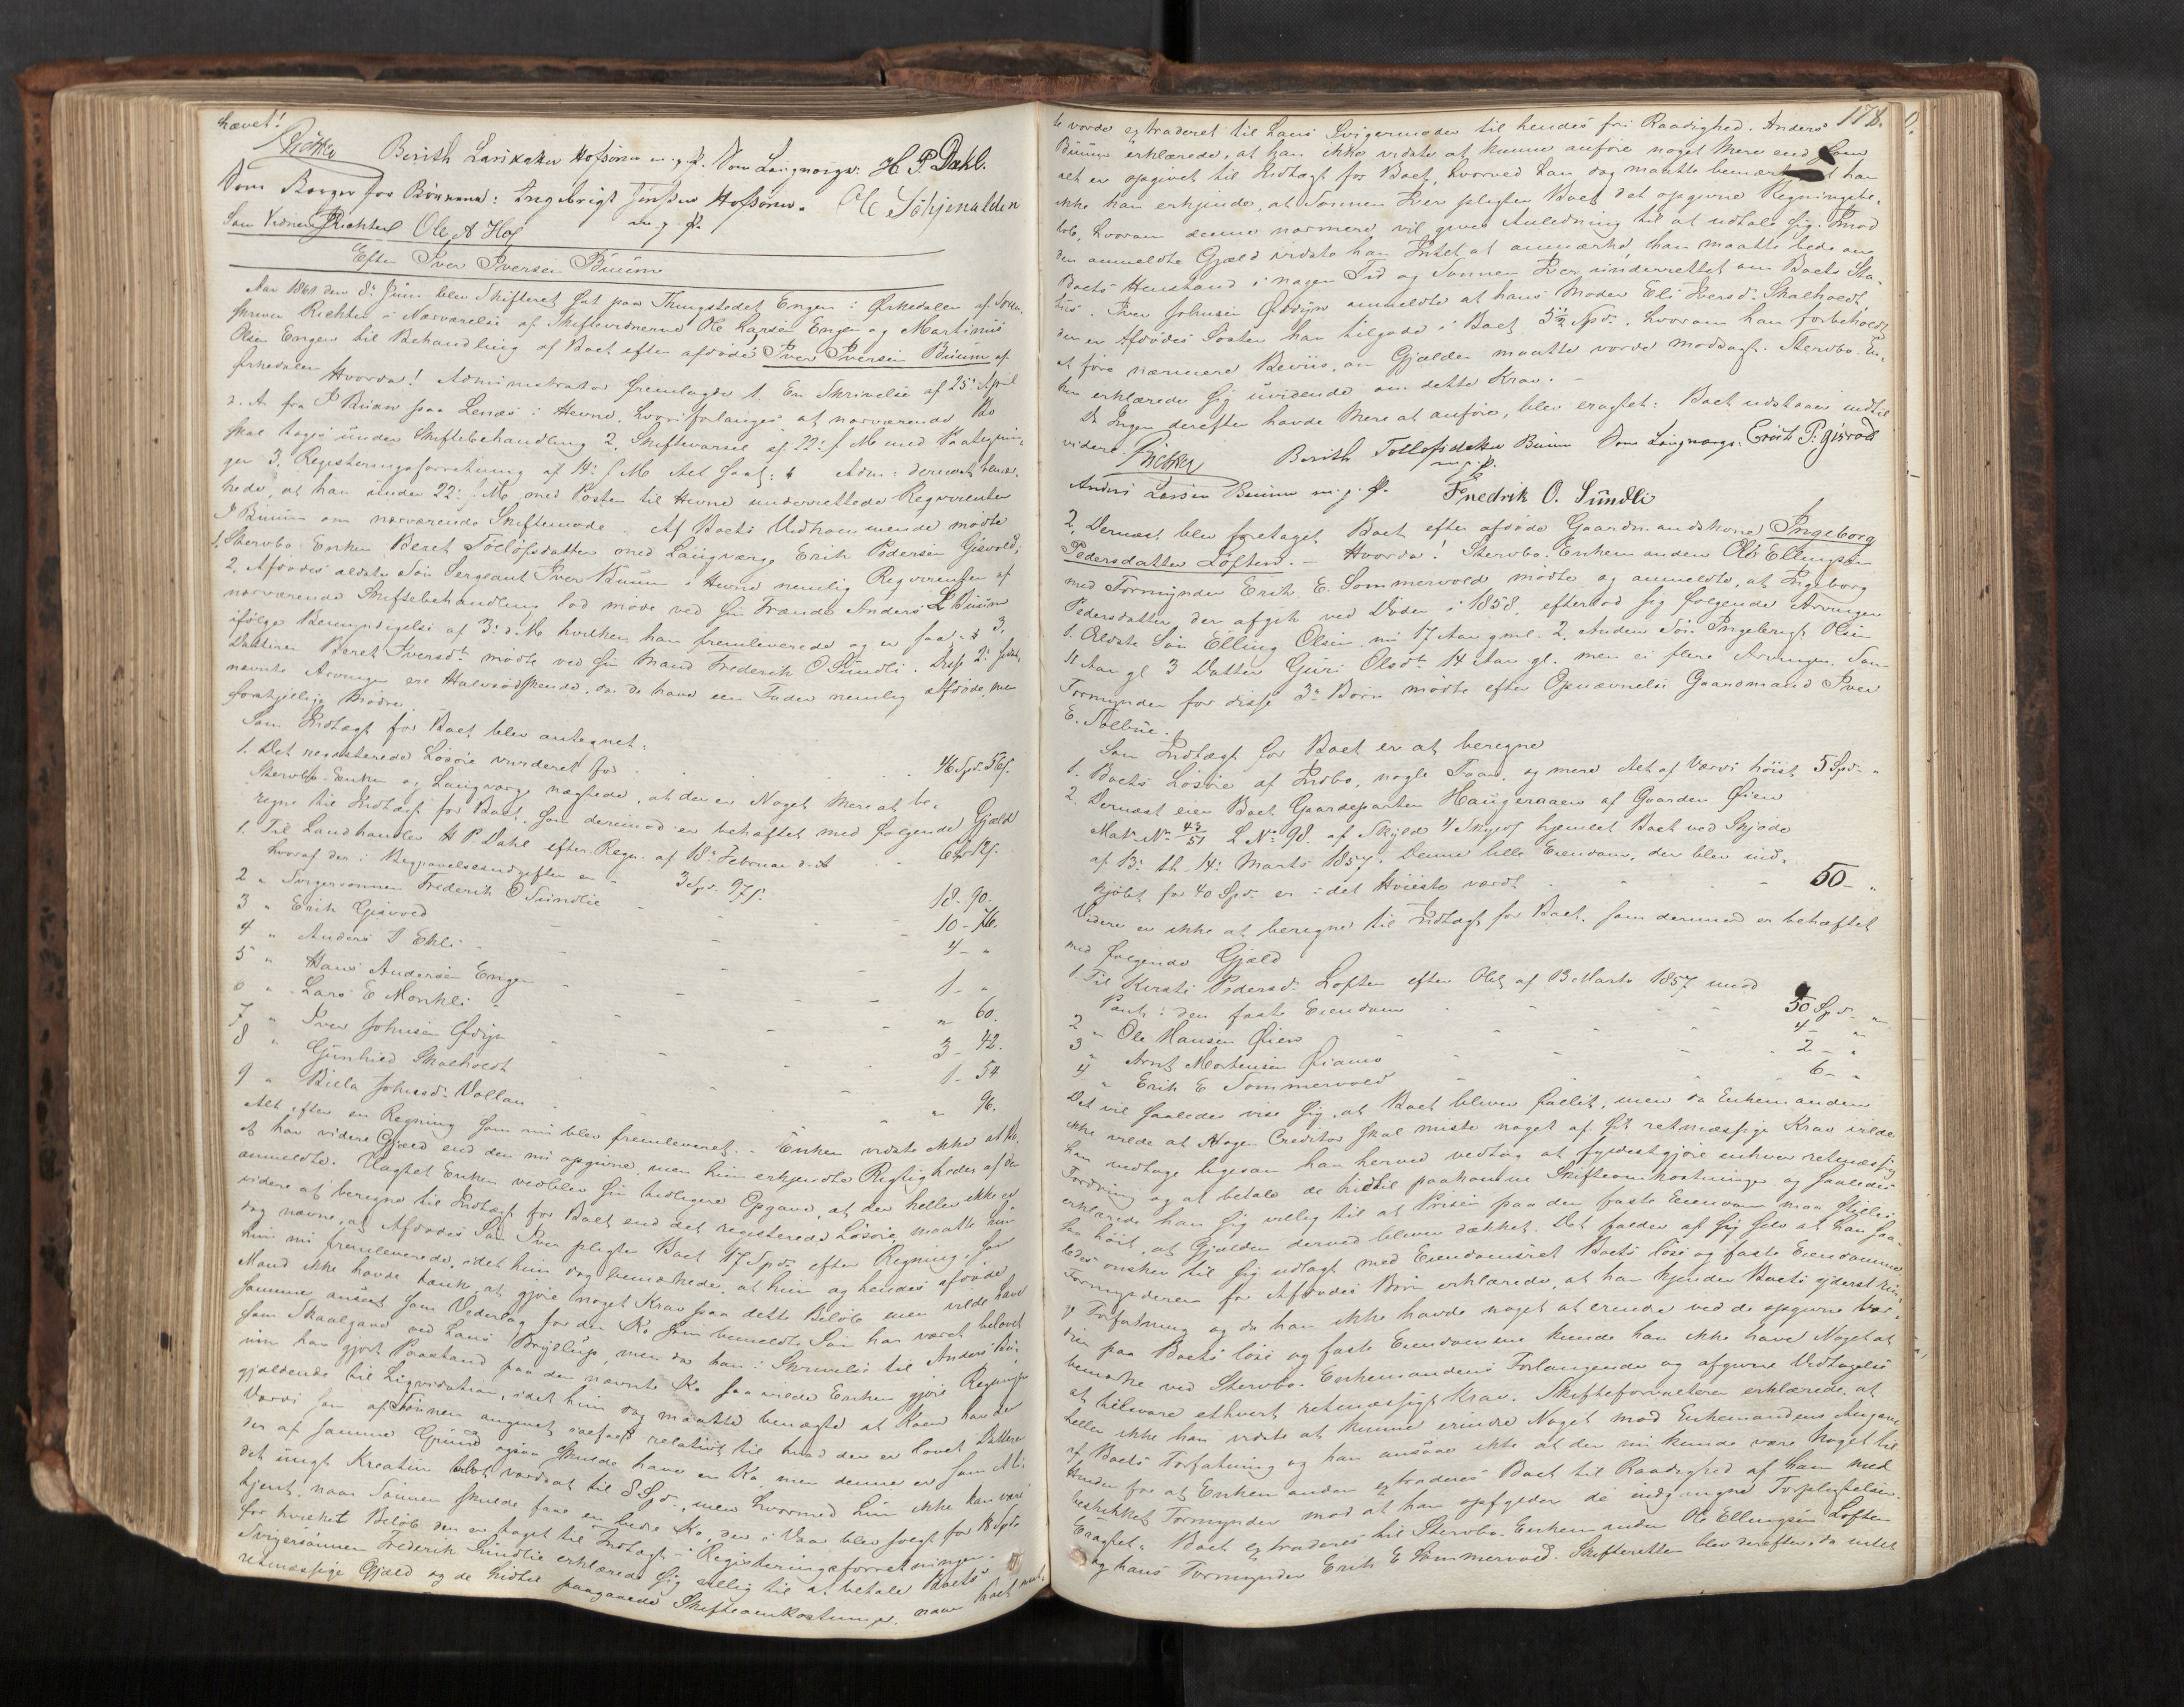 hævet!
Richter Berith Larsdatter Hofsøren m. p. P. Som Laugværge: H. P. Dahl.
Som Værger for Børnene: Ingebrigt Jonsen Hofsøren. Ole
m. p. P.
Som Vidner Richter Ole A Hof
Efter Iver Iversen Buum
Aar 1861 den 8de Juni blev Skifteret sat paa Thingstedet Engen i Ørkedalen af Soren-
skriver Richter i Nærværelse af Skiftevidnerne Ole Larsen Engen og Martinus
Olsen Engen til Behandling af Boet efter afdøde Iver Iversen Buum af
Ørkedalen
Hvorda! Administrator fremlagde 1. En Skrivelse af 25de April
d. A. fra I Buum paa Lenæs i Hevne, hvori forlanges at nærværende Bo
skal tages under Skiftebehandling 2. Skiftevarsel af 22de f M med Paategnin-
ger 3. Registeringsforretning af 14de f M Alt saal: Adm: dernæst bemær-
kede, at han under 22de f M med Posten til Hevne underrettede Reqvirenten
I Buum om nærværende Skiftemøde. Af Boets Vedkommende mødte
1. Stervbo-Enken Beret Tollofsdatter med Laugværge Erik Pedersen Gisvold;
2. Afdødes ældste Søn Sergeant Iver Buum i Hevne nemlig Reqvirenten af
nærværende Skiftebehandling lod møde ved sin Frænde Anders L Buum
ifølge Bemyndigelse af 3de d. M. hvilken han fremleverede og er saal: 3.
Datteren Beret Iversdt mødte ved sin Mand Frederik O Sundli. Disse 2de sidst-
nævnte Arvinger ere Halvsødskende, da de have een Fader nemlig Afdøde, men
forskjellige Mødre.
Som Indtægt for Boet blev antegnet:
1. Det registerede Løsøre vurderet for 46 Spd. 56 s.
Stervbo-Enken og Laugværge nægtede, at der er Noget Mere at be-
regne til Indtægt for Boet. som derimod er behæftet med følgende Gjæld
1. Til Landhandler H P Dahl efter Regn. af 18de Februar d. A
hvoraf der i Begravelsesudgifter er 3 Spd. 97 s.
2 " Svigersønnen Frederik O Sundlie 18. 90.
3 " Erik Gisvold 10 - 76.
4 " Anders I Ekli 4 - "
5 " Hans Andersen Engen 1 - "
6 " Lars E Monkli " 60.
7 " Iver Johnsen Ødyn 3 - 42.
8 " Gunhild Skalholdt 1 - 54
9 " Johnsdt. Vollan " 96.
Alt efter en Regning som nu blev fremleveret. - Enken vidste ikke at Bo-
et har videre Gjæld end den nu opgivne, men hun erkjendte Rigtigheden af den
anmeldte. Uagtet Enken vedblev sin tidligere Opgave, at der heller ikke er
videre at beregne til Indtægt for Boet end det registerede Løsøre, maatte hun
dog nævne, at Afdødes Søn Iver pligter Boet 47 Spd. efter Regning, som
hun nu fremleverede, idet hun dog bemærkede, at hun og hendes afdøde
Mand ikke havde tænkt at gjøre noget Krav paa dette Beløb men vilde have
samme anseet som Vederlag for den Ko som bemeldte Søn har været belovet
som Skaalgave ved hans Bryllup, men da han i Skrivelse til Anders Bu-
um har gjort Paastand paa den nævnte Ko saa vilde Enken gjøre Regningen
gjældende til Liqvidation, idet hun dog maatte benægte at Koen har den
Værdi som af Sønnen angivet ialfald relativt til hvad der er lovet Datteren
der af samme Grund ogsaa skulde have en Ko men denne er som et li-
det ungt Kreatur blot vurderet til 8 Spd., men hvormed hun ikke kan være
tjent, naar Sønnen skulde faae en bedre Ko, der i Vaar blev solgt for 18 Spd.
for hvilket Beløb den er taget til Indtægt i Registeringsforretningen.
Svigersønnen Frederik Sundlie erklærede sig villig til at betale Boets
retmæssige Gjæld og de hidtil paagaaede Skifteomkostninger, naar Boet maat-
178.
te vorde extraderet til hans Svigermoder til hendes fri Raadighed. Anders
Buum erklærede, at han ikke vidste at kunne anføre noget Mere end som
alt er opgivet til Indtægt for Boet, hvorved han dog maatte bemærke at han
ikke kan erkjende, at Sønnen Iver pligter Boet det opgivne Regningsbe-
løb, hvorom denne nærmere vil gives Anledning til at udtale sig. Imod
den anmeldte Gjæld vidste han Intet at anmærke, han maatte bede om
Boets Henstand i nogen Tid og Sønnen Iver underrettet om Boets Sta-
tus. Iver Johnsen Ødyn anmeldte at hans Moder Eli Iversd. Skalholdt,
der er Afdødes Søster har tilgode i Boet 5½ Spd., hvorom han forbeholdt
at føre nærmere Beviis, om Gjælden maatte vorde modsagt. Stervbo-En-
ken erklærede sig uvidende om dette Krav. -
Da Ingen derefter havde Mere at anføre, blev eragtet: Boet udstaaer indtil
videre. Richter Berith Tollofsdatter Buum Som Laugværge: Erich P: Gisvold
m. p. P.
Anders Larsen Buum m. p. P. Fredrik O. Sundli
2, Dernæst blev foretaget Boet efter afdøde Gaardmandskone Ingeborg
Pedersdatter Loften. - Hvorda! Stervbo-Enkemanden Ole Ellingsen
med Formynder Erik E. Sommervold mødte og anmeldte, at Ingeborg
Pedersdatter der afgik ved Døden i 1858, efterlod sig følgende Arvinger
1. Ældste Søn Elling Olsen nu 17 Aar gml. 2. Anden Søn Ingebrigt Olsen
11 Aar gl 3 Datter Guri Olsdt. 14 Aar gl. men ei flere Arvinger. Som
Formynder for disse 3de Børn mødte efter Opnævnelse Gaardmand Iver
E. Solbue.
Som Indtægt for Boet er at beregne
1. Boets Løsøre af Indbo, nogle Faar, og mere Alt af Værdi høist 5 Spd. "
2. Dernæst eier Boet Gaardeparten Haugeraaen af Gaarden Øien
Matr. No 43/51 L No 98. af Skyld 4 Skyll hjemlet Boet ved Skjøde
af 13. th. 14. Marts 1857. Denne lille Eiendom, der blev ind-
kjøbt for 40 Spd. er i det Høieste værdt 50 - "
Videre er ikke at beregne til Indtægt for Boet, som derimod er behæftet
med følgende Gjæld
1. Til Kirsti Pedersd. Loften efter Obl. af 13 Marts 1857 med
Pant i den faste Eiendom 50 Spd. "
2 " Ole Hansen Øien 4 - "
3 " Arnt Mortensen Øiamo 2 - "
4 " Erik E Sommervold 6 - "
Det vil saaledes vise sig, at Boet bliver fallit, men da Enkemanden
ikke vilde at Nogen Creditor skal miste noget af sit retmæssige Krav vilde
han vedtage ligesom han herved vedtog at fyldestgjøre enhver retmæssig
Fordring og at betale de hidtil paakomne Skifteomkostninger og saaledes
erklærede han sig villig til at Prisen paa den faste Eiendom maa stilles
saa høit, at Gjælden derved bliver dækket. Det falder af sig selv at han saa-
ledes ønsker til sig udlagt med Eiendomsret Boets løse og faste Eiendomme
Formynderen for Afdødes Børn erklærede, at han kjender Boets yderst rin-
ge Forfatning og da han ikke havde noget at erindre ved de opgivne Vær-
dier paa Boets løse og faste Eiendomme kunde han ikke have Noget at
bemærke ved Stervbo-Enkemandens Forlangende og afgivne Vedtagelse
at tilsvare ethvert retmæssigt Krav. Skifteforvalteren erklærede, at
heller ikke han vidste at kunne erindre Noget mod Enkemandens Angivende
af Boets Forfatning og han ansaae ikke at der nu kunde være Noget til
Hinder for at Enkemanden extraderes Boet til Raadighed af ham med
beskikket Formynder mod at han opfylder de indgangne Forpligtelser.
Eragtet: Boet extraderes til Stervbo-Enkemanden Ole Ellingsen Loften
og hans Formynder Erik E Sommervold. Skifteretten blev derefter, da intet